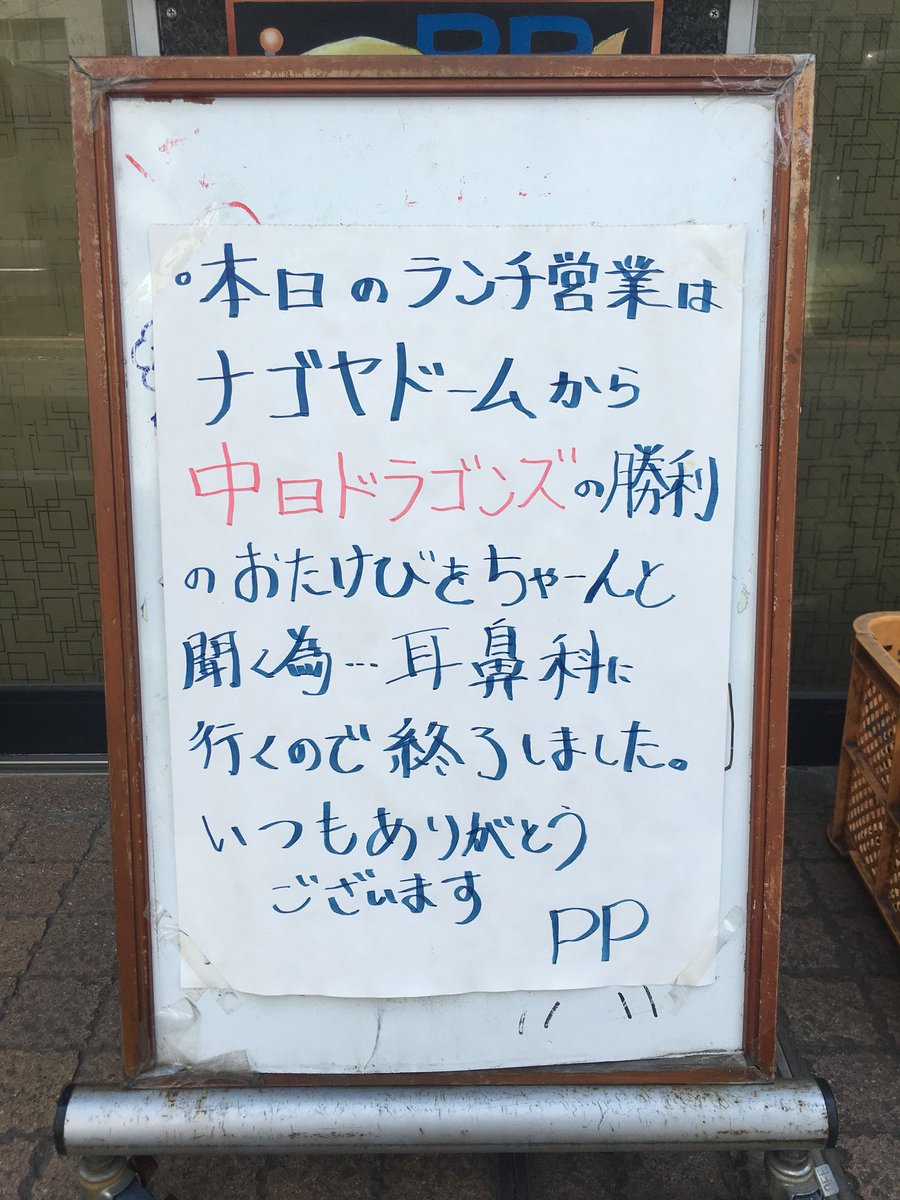 PP
。本日のランチ営業は
ナゴヤドームから
中日ドラゴンズの勝利
のおたけびをちゃーんと
聞く為…耳鼻科に
行くので終了しました。
いつもありがとう
ございます
PP